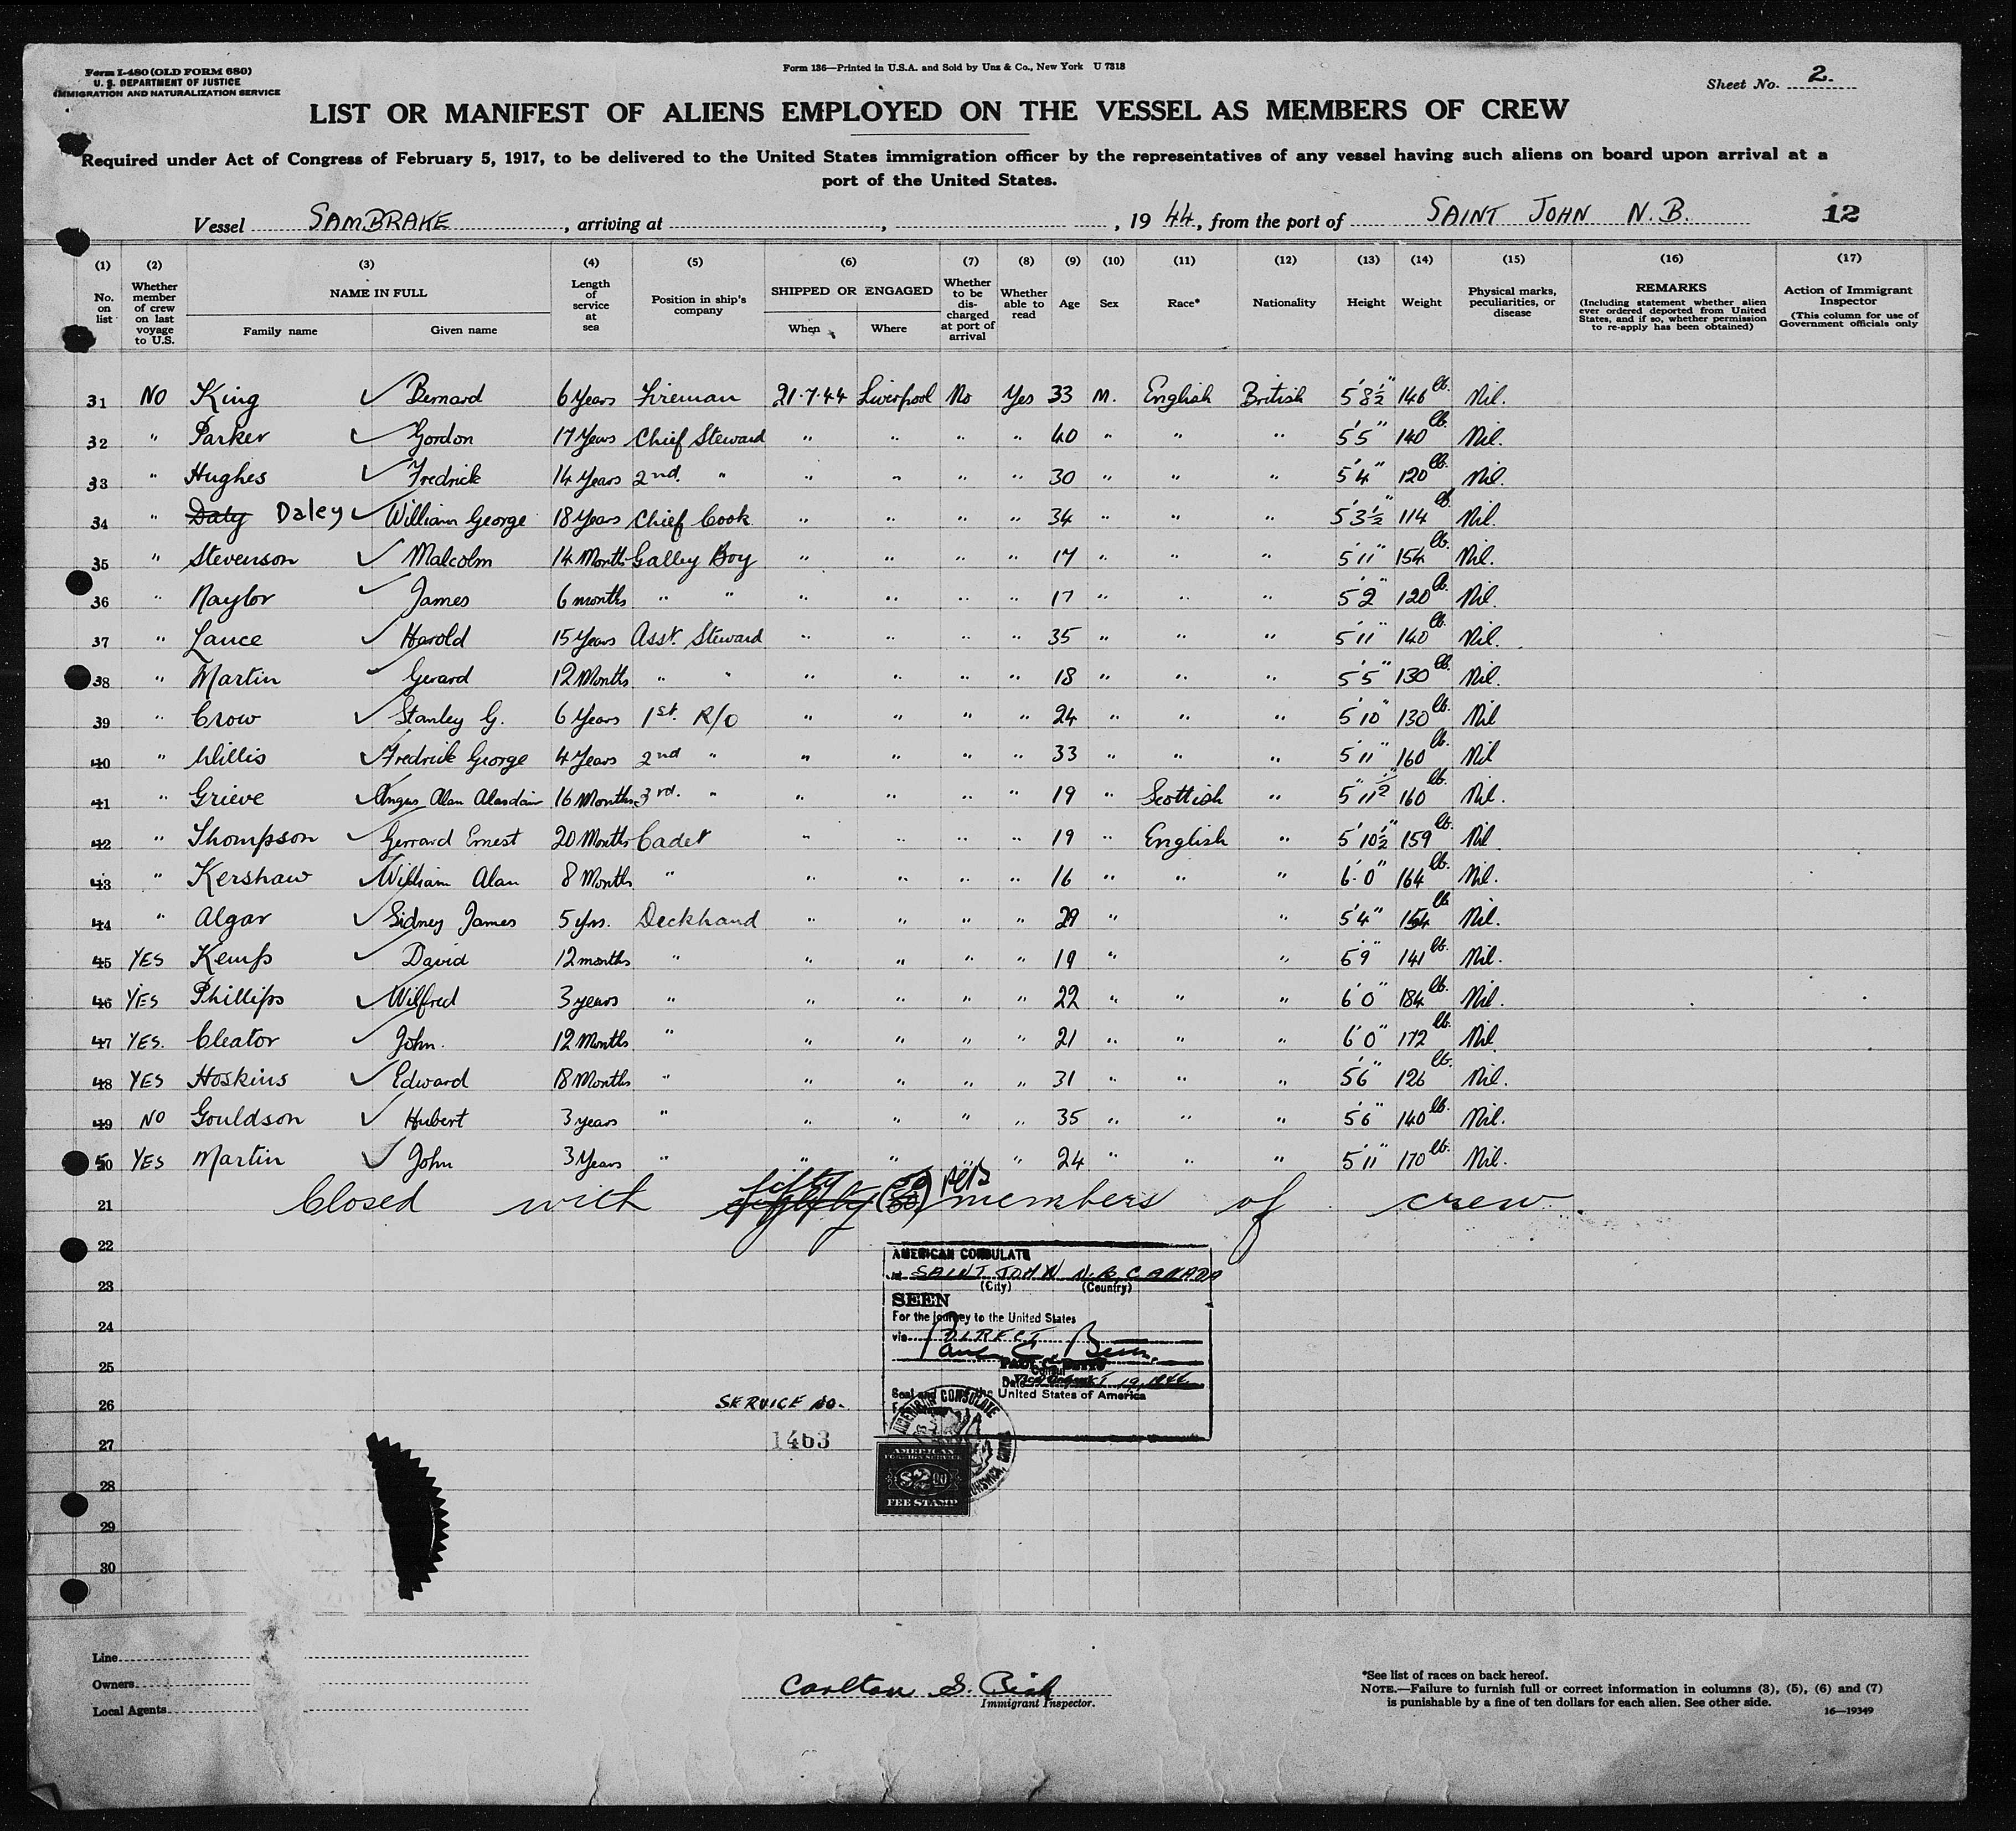 Form I-480 (OLD FORM 680)
U. S. DEPARTMENT OF JUSTICE
IMMIGRATION AND NATURALIZATION SERVICE
Form 136—Printed in U.S.A. and Sold by Unz & Co., New York U 7318
Sheet No. 2.
LIST OR MANIFEST OF ALIENS EMPLOYED ON THE VESSEL AS MEMBERS OF CREW
Required under Act of Congress of February 5, 1917, to be delivered to the United States immigration officer by the representatives of any vessel having such aliens on board upon arrival at a
port of the United States.
Vessel SAMBRAKE, arriving at , , 19 44, from the port of SAINT JOHN N.B. 12
(1) (2) (3) (4) (5) (6) (7) (8) (9) (10) (11) (12) (13) (14) (15) (16) (17)
No. on list
Whether member of crew on last voyage to U.S.
NAME IN FULL
Family name Given name
Length of service at sea
Position in ship's company
SHIPPED OR ENGAGED
When Where
Whether to be discharged at port of arrival
Whether able to read
Age
Sex
Race*
Nationality
Height
Weight
Physical marks, peculiarities, or disease
REMARKS
(Including statement whether alien ever ordered deported from United States, and if so, whether permission to re-apply has been obtained)
Action of Immigrant Inspector
(This column for use of Government officials only
31 NO King ✓ Bernard 6 Years Fireman 21.7.44 Liverpool No Yes 33 M. English British 5'8½" 146 lb. Nil.
32 " Parker ✓ Gordon 17 Years Chief Steward " " " " 40 " " " 5'5" 140 lb. Nil.
33 " Hughes ✓ Fredrick 14 Years 2nd. " " " " " 30 " " " 5'4" 120 lb. Nil.
34 " Daly Daley ✓ William George 18 Years Chief Cook " " " " 34 " " " 5'3½" 114 lb. Nil.
35 " Stevenson ✓ Malcolm 14 Months Galley Boy " " " " 17 " " " 5'11" 154 lb. Nil.
36 " Naylor ✓ James 6 months " " " " " " 17 " " " 5'2" 120 lb. Nil.
37 " Lance ✓ Harold 15 Years Asst. Steward " " " " 35 " " " 5'11" 140 lb. Nil.
38 " Martin ✓ Gerard 12 Months " " " " " " 18 " " " 5'5" 130 lb. Nil.
39 " Crow ✓ Stanley G. 6 Years 1st. R/O " " " " 24 " " " 5'10" 130 lb. Nil
40 " Willis ✓ Fredrick George 4 Years 2nd " " " " " 33 " " " 5'11" 160 lb. Nil
41 " Grieve ✓ Angus Alan Alasdair 16 Months 3rd. " " " " " 19 " Scottish " 5'11½" 160 lb. Nil.
42 " Thompson ✓ Gerrard Ernest 20 Months Cadet " " " " 19 " English " 5'10½" 159 lb. Nil
43 " Kershaw ✓ William Alan 8 Months " " " " " 16 " " " 6'0" 164 lb. Nil.
44 " Algar ✓ Sidney James 5 yrs. Deckhand " " " " 29 " " 5'4" 154 lb Nil.
45 YES Kemp ✓ David 12 months " " " " " 19 " " 5'9" 141 lb. Nil.
46 YES Phillips ✓ Wilfred 3 years " " " " " 22 " " " 6'0" 184 lb. Nil.
47 YES. Cleator ✓ John. 12 Months " " " " " 21 " " " 6'0" 172 lb. Nil
48 YES Hoskins ✓ Edward 18 Months " " " " " 31 " " " 5'6" 126 lb. Nil.
49 NO Gouldson ✓ Hubert 3 years " " " " " 35 " " " 5'6" 140 lb. Nil.
50 YES Martin ✓ John 3 Years " " " " " 24 " " " 5'11" 170 lb. Nil.
21 Closed with fifty (50) members of crew.
22
23
24
25
26
27
28
29
30
AMERICAN CONSULATE
at SAINT JOHN N.B. CANADA
(City) (Country)
SEEN
For the journey to the United States
via DIRECT
Date 19, 1944
the United States of America
SERVICE NO.
1463
AMERICAN CONSULATE
AMERICAN
FOREIGN SERVICE
$2.00
FEE STAMP
Line
Owners
Local Agents
Carlton S.
Immigrant Inspector.
*See list of races on back hereof.
NOTE.—Failure to furnish full or correct information in columns (3), (5), (6) and (7)
is punishable by a fine of ten dollars for each alien. See other side.
16—19349